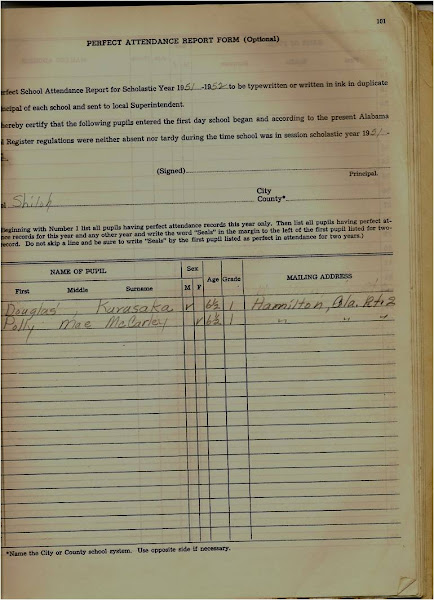 101
PERFECT ATTENDANCE REPORT FORM (Optional)
erfect School Attendance Report for Scholastic Year 1951-1952 to be typewritten or written in ink in duplicate
incipal of each school and sent to local Superintendent.
hereby certify that the following pupils entered the first day school began and according to the present Alabama
l Register regulations were neither absent nor tardy during the time school was in session scholastic year 1951-
(Signed)
Principal.
City
ol Shiloh County*
Beginning with Number 1 list all pupils having perfect attendance records this year only. Then list all pupils having perfect at-
nce records for this year and any other year and write the word "Seals" in the margin to the left of the first pupil listed for two-
record. Do not skip a line and be sure to write "Seals" by the first pupil listed as perfect in attendance for two years.)
NAME OF PUPIL Sex Age Grade MAILING ADDRESS
First Middle Surname M F
Douglas Kurasaka ✓ 6½ 1 Hamilton, Ala. Rt. 2
Polly Mae McCarley ✓ 6½ 1 " " "
*Name the City or County school system. Use opposite side if necessary.